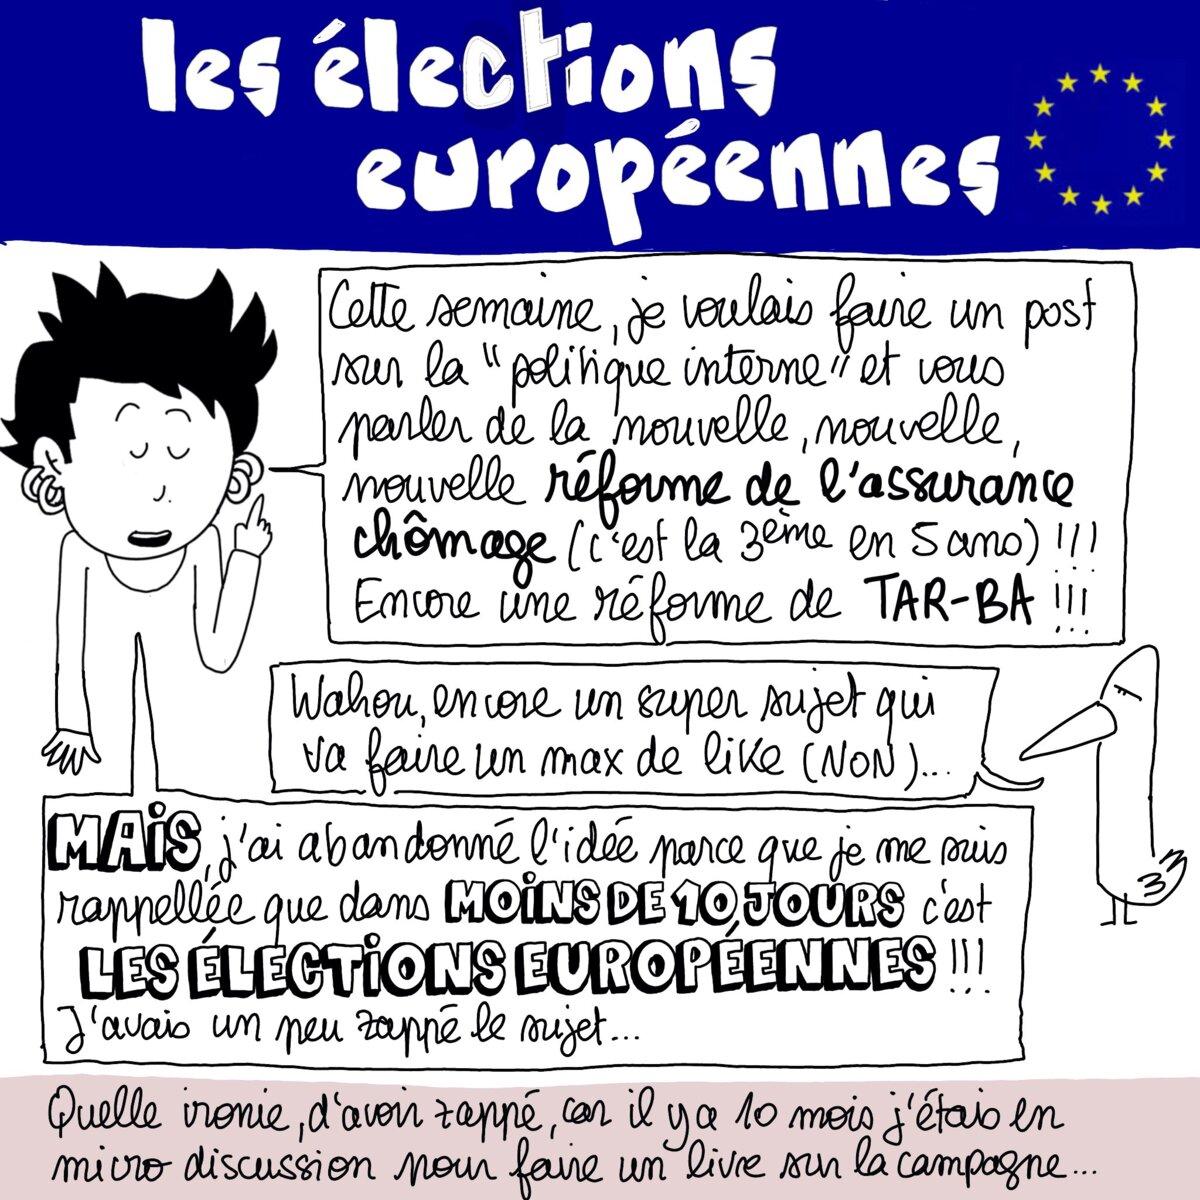 les élections
européennes
Cette semaine, je voulais faire un post
sur la "politique interne" et vous
parler de la nouvelle, nouvelle,
nouvelle réforme de l'assurance
chômage (c'est la 3ème en 5 ans) !!!
Encore une réforme de TAR-BA !!!
Wahou, encore un super sujet qui
va faire un max de like (NON)...
MAIS, j'ai abandonné l'idée parce que je me suis
rappellée que dans MOINS DE 10 JOURS c'est
LES ÉLECTIONS EUROPÉENNES !!!
J'avais un peu zappé le sujet...
Quelle ironie, d'avoir zappé, car il y a 10 mois j'étais en
micro discussion pour faire un livre sur la campagne...